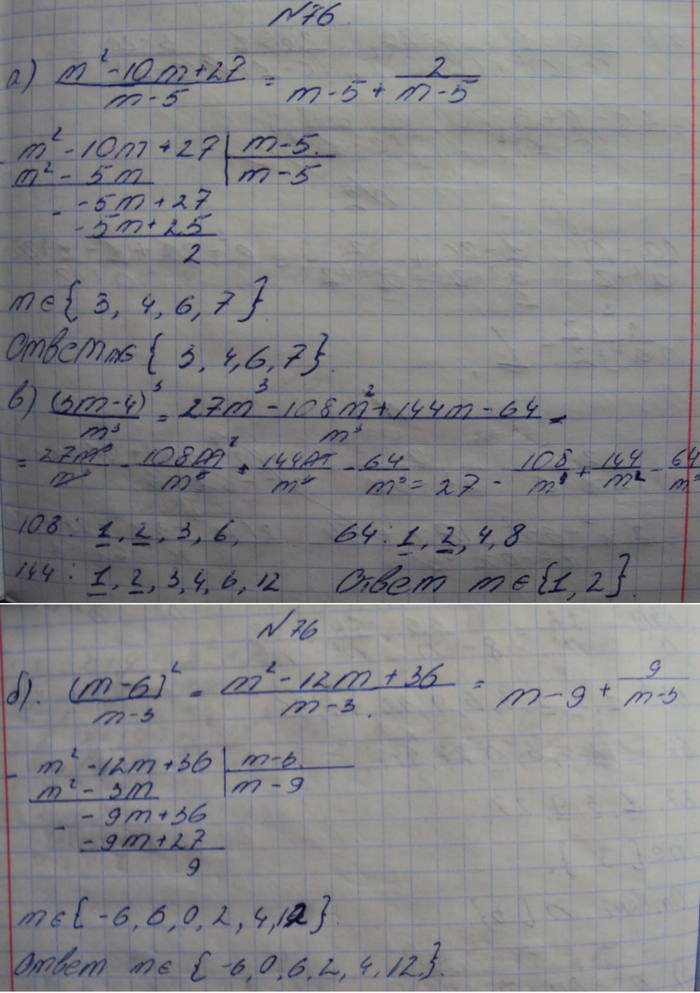 N76.
а) (m² - 10m + 27)/(m - 5) = m - 5 + 2/(m - 5)
- m² - 10m + 27 | m - 5.
m² - 5m | m - 5
- -5m + 27
-5m + 25
2
m ∈ { 3, 4, 6, 7 }.
Ответ m∈ { 3, 4, 6, 7 }.
в) (3m - 4)³/m³ = (27m³ - 108m² + 144m - 64)/m³ =
= 27m³/m³ - 108m²/m³ + 144m/m³ - 64/m³ = 27 - 108/m³ + 144/m² - 64/m³
108 : 1, 2, 3, 6, 64 : 1, 2, 4, 8
144 : 1, 2, 3, 4, 6, 12 Ответ m ∈ {1, 2}.
N76
б). (m - 6)²/(m - 3) = (m² - 12m + 36)/(m - 3). = m - 9 + 9/(m - 3)
- m² - 12m + 36 | m - 3.
m² - 3m | m - 9
- -9m + 36
-9m + 27
9
m ∈ { -6, 6, 0, 2, 4, 12 }.
Ответ m ∈ { -6, 0, 6, 2, 4, 12 }.